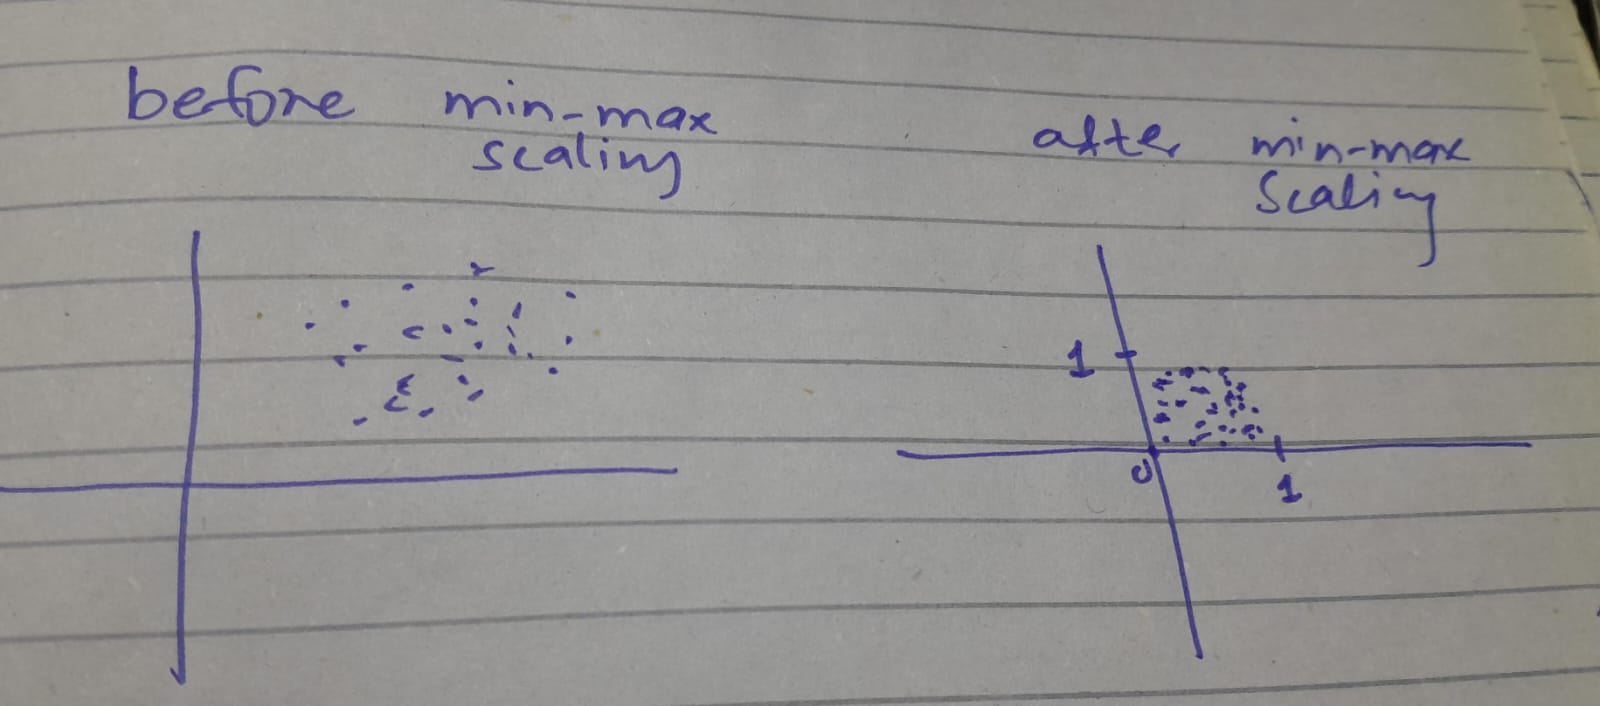 before min-max
scaling
after min-max
Scaling
1
0
1